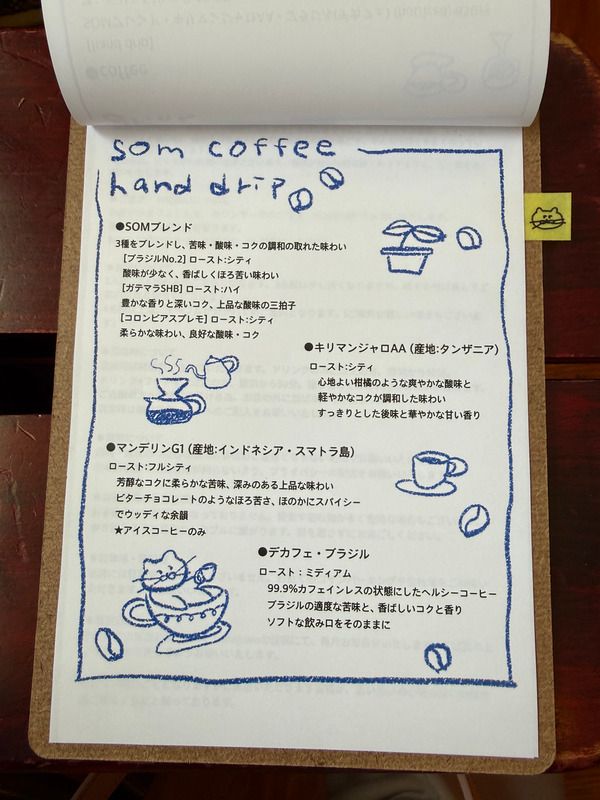 som coffee
hand drip
●SOMブレンド
3種をブレンドし、苦味・酸味・コクの調和の取れた味わい
[ブラジルNo.2] ロースト:シティ
酸味が少なく、香ばしくほろ苦い味わい
[ガテマラSHB] ロースト:ハイ
豊かな香りと深いコク、上品な酸味の三拍子
[コロンビアスプレモ] ロースト:シティ
柔らかな味わい、良好な酸味・コク
●キリマンジャロAA（産地:タンザニア）
ロースト:シティ
心地よい柑橘のような爽やかな酸味と
軽やかなコクが調和した味わい
すっきりとした後味と華やかな甘い香り
●マンデリンG1（産地:インドネシア・スマトラ島）
ロースト:フルシティ
芳醇なコクに柔らかな苦味、深みのある上品な味わい
ビターチョコレートのようなほろ苦さ、ほのかにスパイシー
でウッディな余韻
★アイスコーヒーのみ
●デカフェ・ブラジル
ロースト：ミディアム
99.9%カフェインレスの状態にしたヘルシーコーヒー
ブラジルの適度な苦味と、香ばしいコクと香り
ソフトな飲み口をそのままに